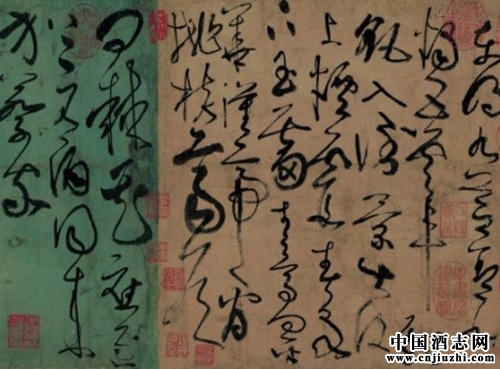 東明九芝蓋北
燭五雲車飄
飄入倒景出沒
上煙霞春泉
下玉霤青鳥向金
華漢帝看
桃核齊侯
問棘花應逐
上元酒同來
訪蔡家
中国酒志网
www.cnjiuzhi.com